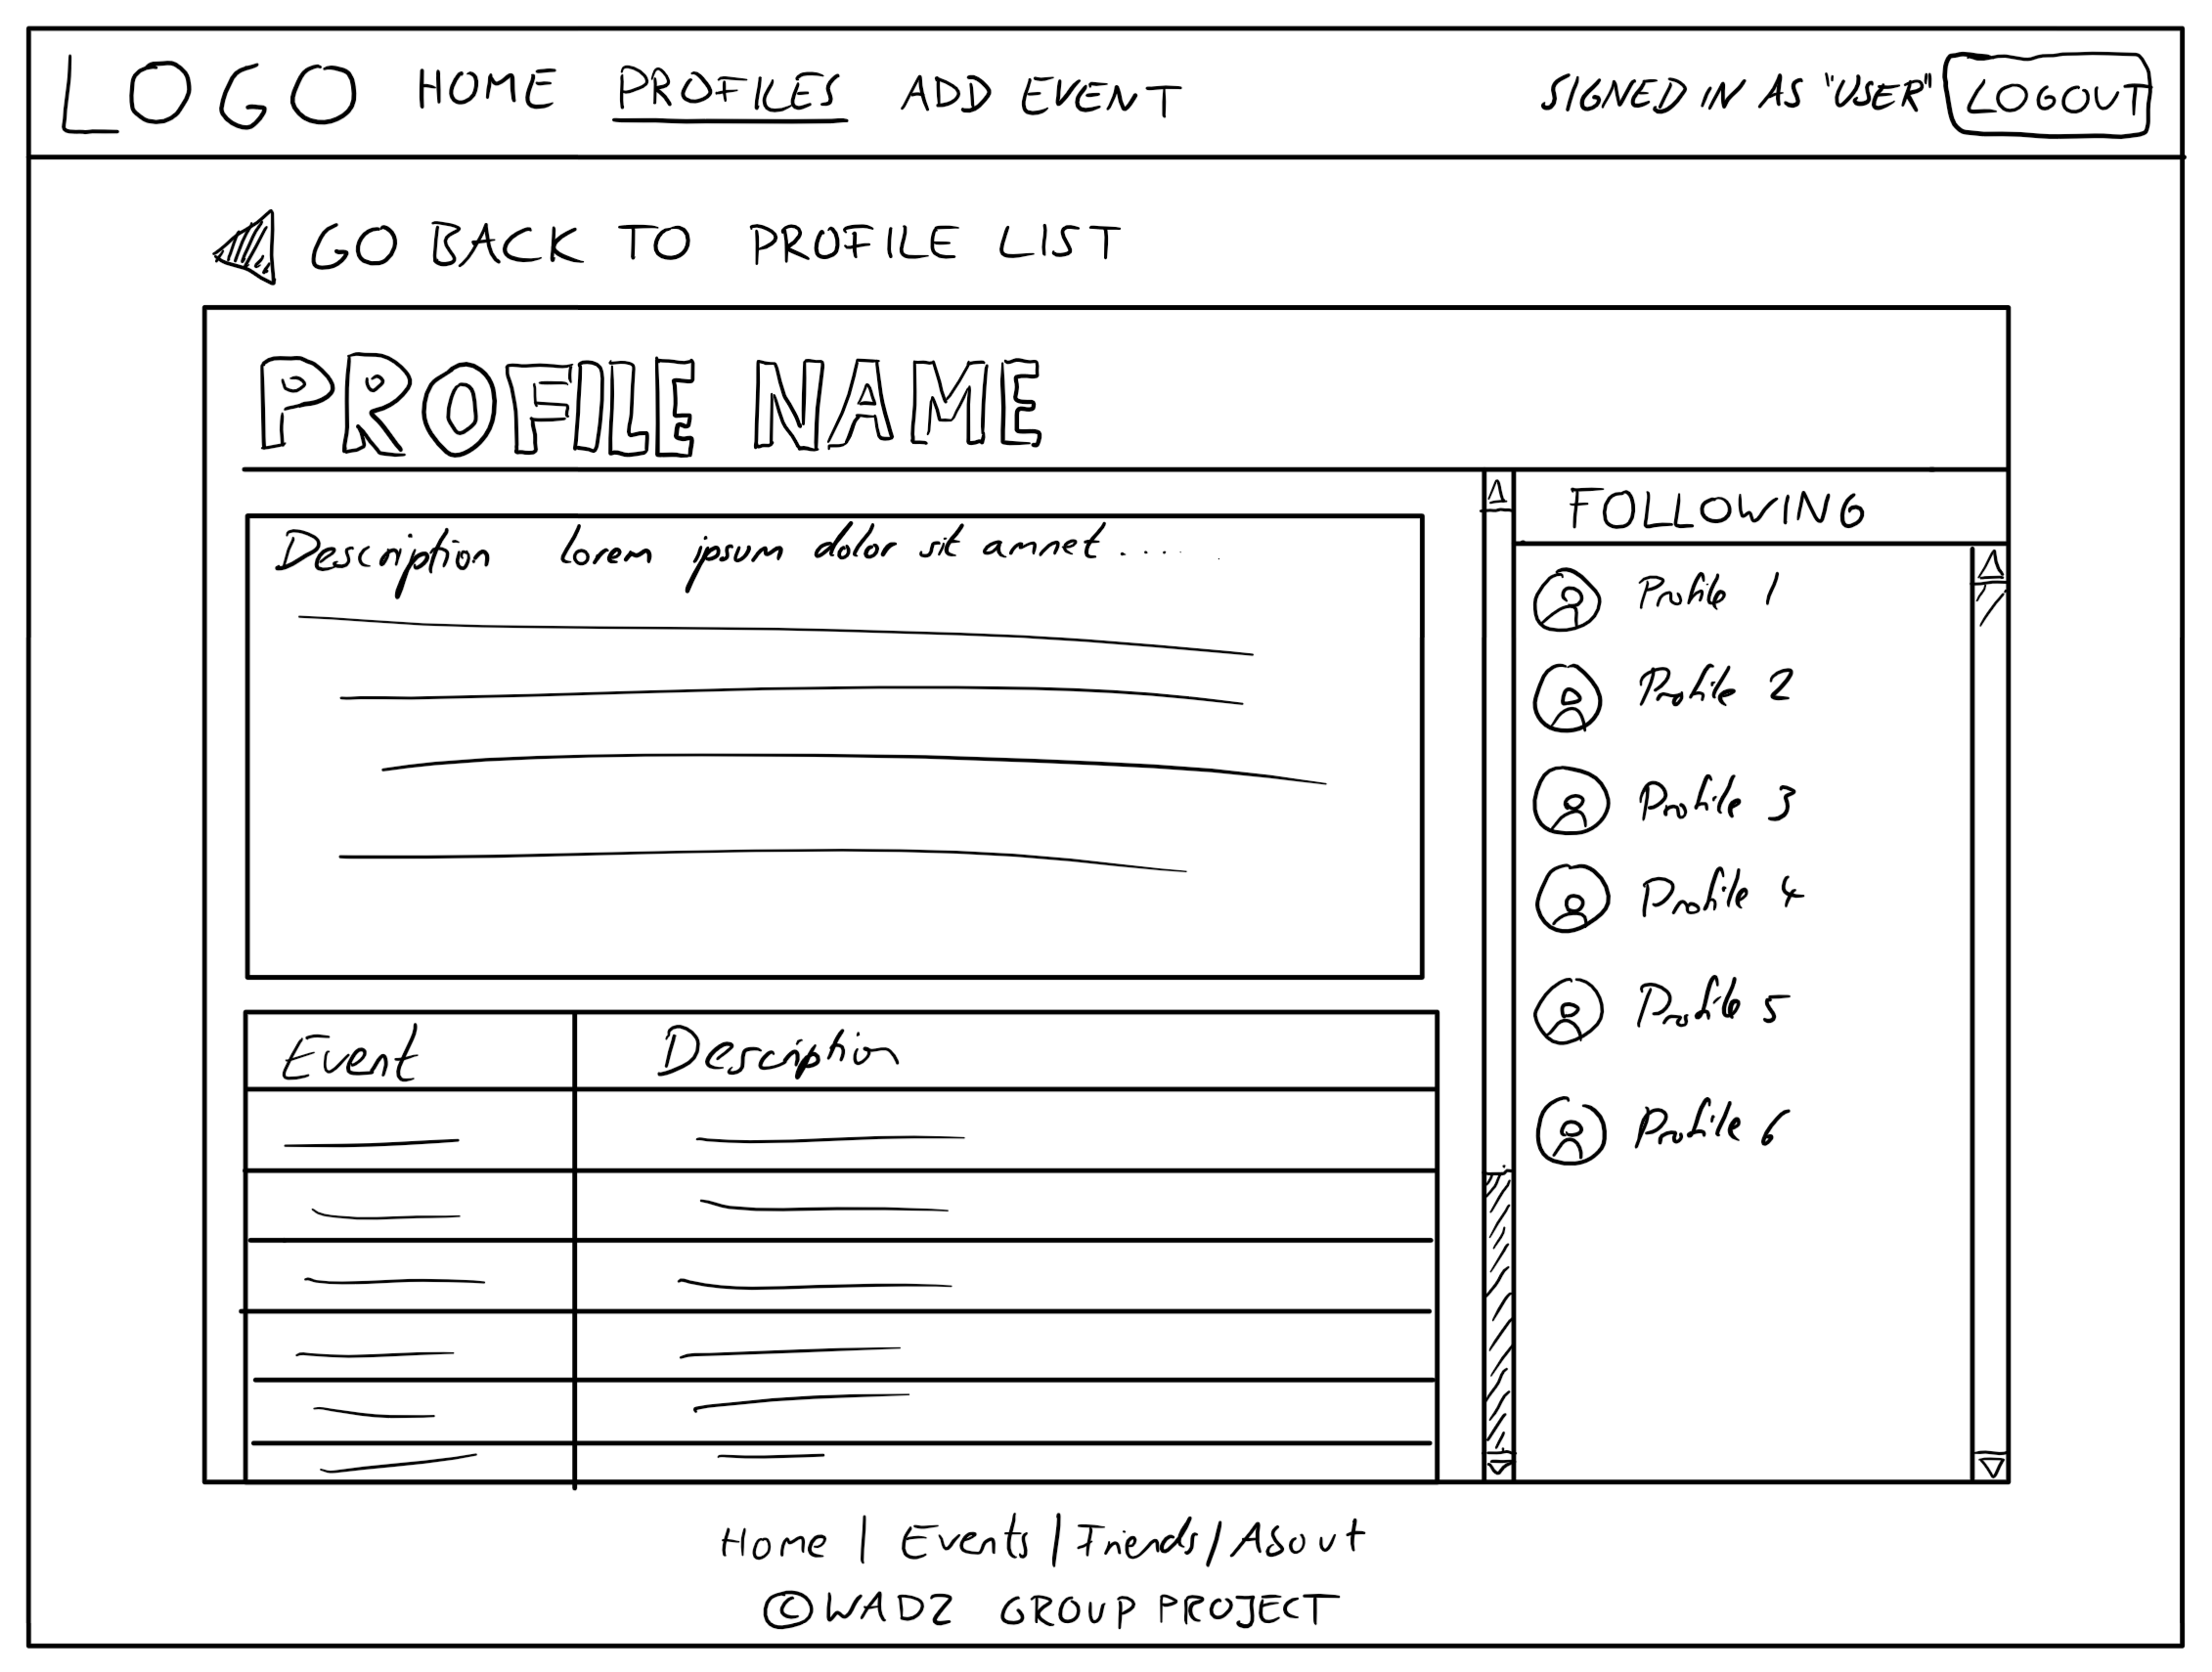 LOGO HOME PROFILES ADD EVENT SIGNED IN AS "USER" LOGOUT
GO BACK TO PROFILE LIST
PROFILE NAME
Description lorem ipsum dolor sit amet.....
Event Description
FOLLOWING
Profile 1
Profile 2
Profile 3
Profile 4
Profile 5
Profile 6
Home | Events | Friends / About
© WAD2 GROUP PROJECT